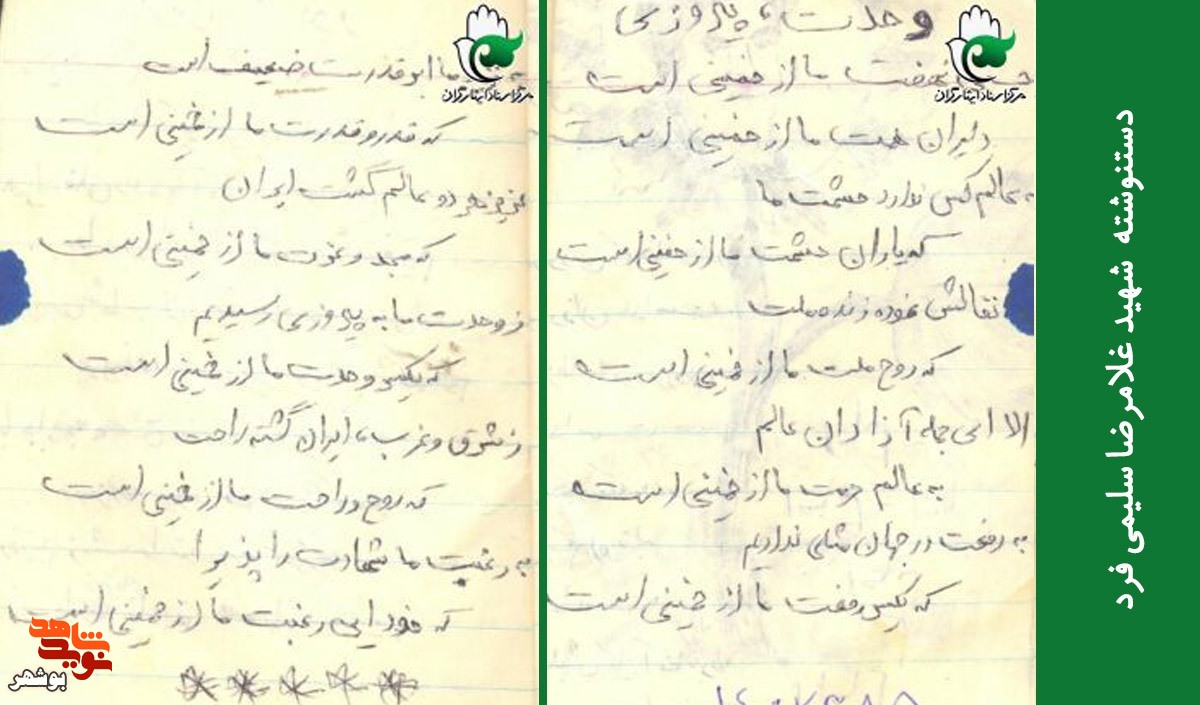 وحدت، پیروزی
نهضت ما از خمینی است
دلیران همت ما از خمینی است
به عالم کس ندارد حشمت ما
که یاران حشمت ما از خمینی است
نموده زنده ملت
که روح ملت ما از خمینی است
الا ای جمله آزادان عالم
به عالم حرمت ما از خمینی است
به رفعت در جهان مثلی نداریم
که یکسر رفعت ما از خمینی است
ما ابرقدرت ضعیف است
که قدر و قدرت ما از خمینی است
عزیز هر دو عالم گشت ایران
که مجد و عزت ما از خمینی است
ز وحدت ما به پیروزی رسیدیم
که یکسر وحدت ما از خمینی است
ز شرق و غرب، ایران گشته راحت
که روح و راحت ما از خمینی است
به رغبت ما شهادت را پذیرا
که خود این رغبت ما از خمینی است
مرکز اسناد ایثارگران
مرکز اسناد ایثارگران
دستنوشته شهید غلامرضا سلیمی فرد
نوید شاهد
بوشهر